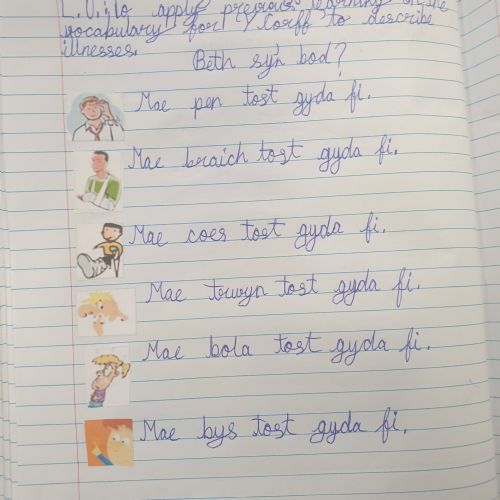 L.O.: to apply previous learning on the
vocabulary for Y Corff to describe
illnesses.
Beth sy'n bod?
Mae pen tost gyda fi.
Mae braich tost gyda fi.
Mae coes tost gyda fi.
Mae trwyn tost gyda fi.
Mae bola tost gyda fi.
Mae bys tost gyda fi.